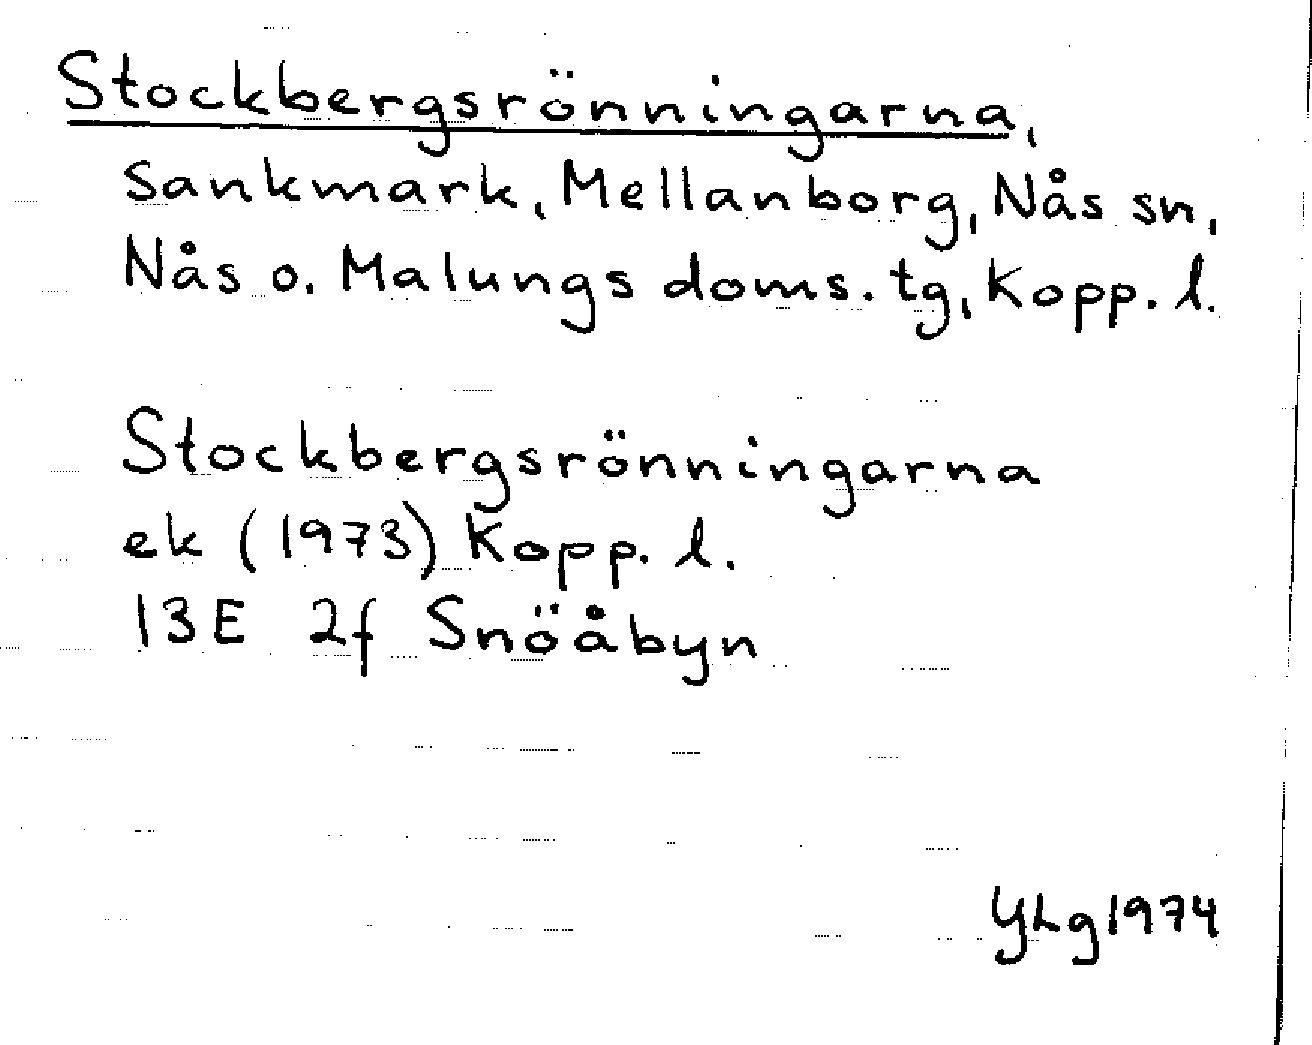 Stockbergsrönningarna,
Sankmark, Mellanborg, Nås sn,
Nås o. Malungs doms. tg, Kopp. l.
Stockbergsrönningarna
ek (1973) Kopp. l.
13E 2f Snöåbyn
YLg 1974